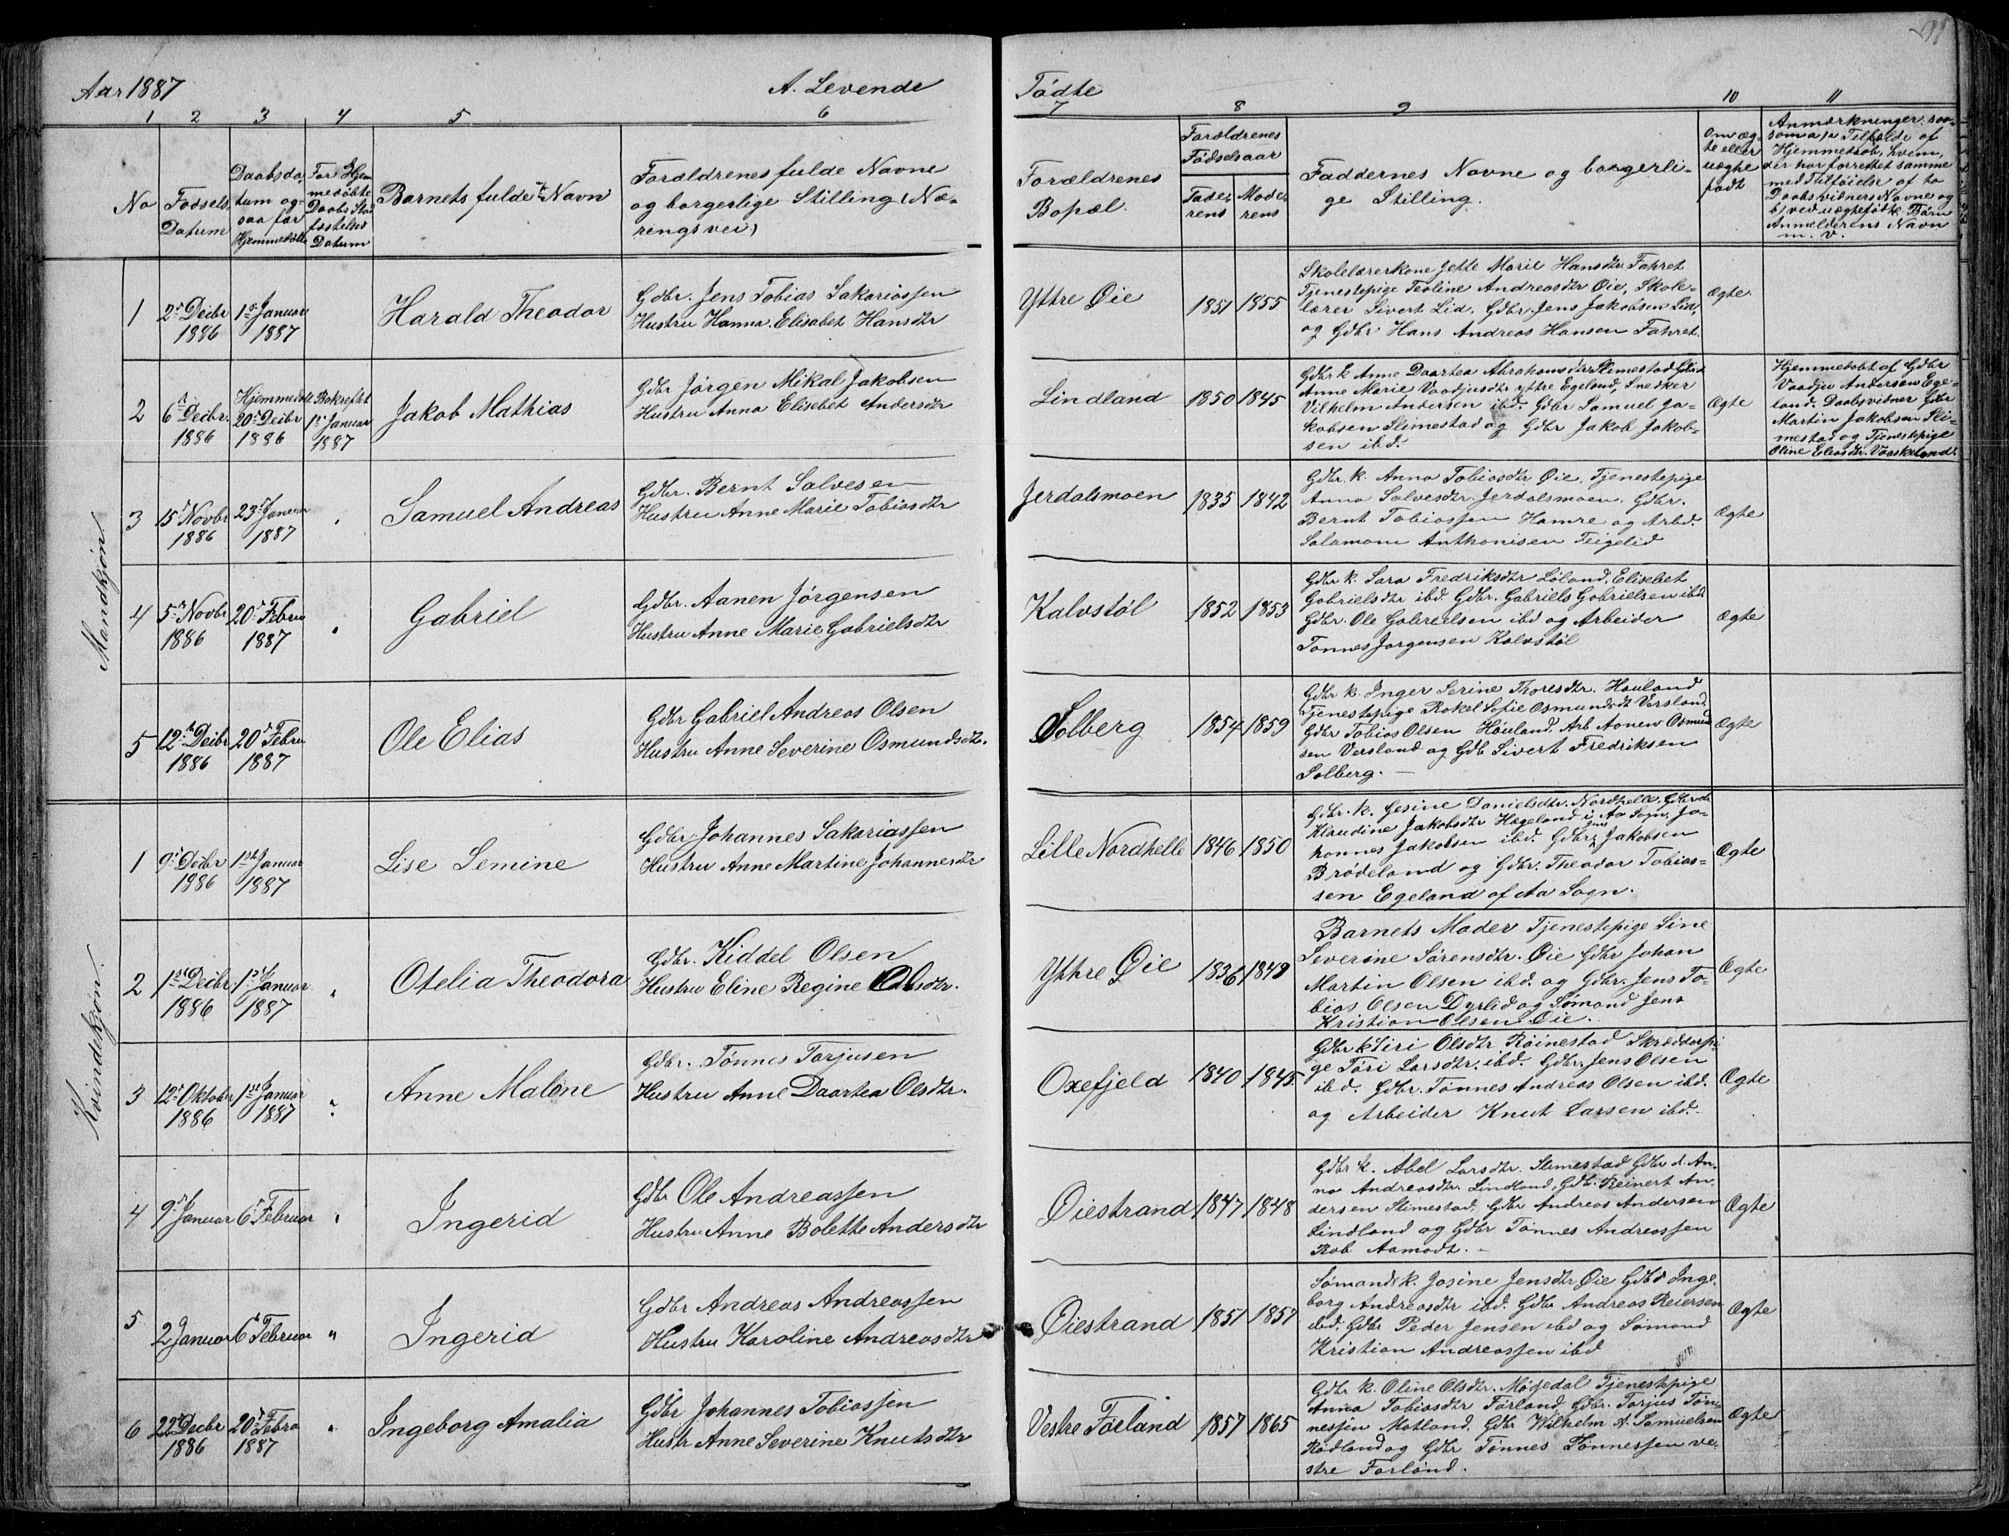 Aar 1887
A. Levende
Fødte
1 2 3 4 5 6
7 8 9 10 11
No
Fødsels
Datum
Daabsda,
tum og,
saa for
Hjemmedøbte
For Hjem
medøbte
Daabs Stad
fæstelses
Datum
Barnets fulde Navn
Forældrenes fulde Navne
og borgerlige Stilling (Næ,
ringsvei)
Forældrenes
Bopæl.
Forældrenes
Fødselsaar
Fade,
rens
Mode,
rens
Faddernes Navne og borgerli,
ge Stilling.
Om æg,
te eller
uægte
født
Anmærkninger, saa,
som a) i Tilfælde af
Hjemmedøb, hvem,
der har forrettet samme
med Tilføielse af to
Daabsvidners Navne og
b) ved uægtefødte Børn
Anmelderens Navn
m. v.
Mandkjøn.
1
2n Decbr
1886
1ste Januar
1887
Harald Theodor
Gdbr. Jens Tobias Sakariassen
Hustru Hanna Elisabet Hansdtr
Yttre Øie
1851 1855
Skolelærerkone Jette Marie Hansdtr Fahret
Tjenestepige Teoline Andreasdtr Øie, Skole-
lærer Sivert Lid, Gdbr Jens Jakobsen Lid,
og Gdbr Hans Andreas Hansen Fahret.
Ægte.
2
6n Decbr.
1886
Hjemmedøbt
20n Decbr
1886
Bekræftet
1ste Januar
1887
Jakob Mathias
Gdbr Jørgen Mikal Jakobsen
Hustru Anna Elisebet Andersdtr
Lindland
1850 1845
Gdbr k Anne Daartea Abrahamsdtr Slimestad Gdbr d
Anne Marie Vaadjusdtr yttre Egeland, Snedker
Vilhelm Andersen ibd. Gdbr Samuel Ja-
kobsen Slimestad og Gdbr Jakob Jakob-
sen ibd.
Ægte
Hjemmedøbt af Gdbr
Vaadju Andersen Ege-
land. Daabsvidner Gdbr
Martin Jakobsen Sli-
mestad og Tjenestepige
Oline Eliasdtr. Vaaskeland.
3
15n Novbr
1886
23n Januar
1887
Samuel Andreas
Gdbr. Bernt Salvesen
Hustru Anne Marie Tobiasdtr
Jerdalsmoen
1835 1842
Gdbr. k. Anna Tobiasdtr Øie, Tjenestepige
Anna Salvesdtr. Jerdalsmoen. Gdbr.
Bernt Tobiassen Hamre og Arbd.
Salamon Anthonisen Teigelid
Ægte
4
5n Novbr
1886
20n Febru
1887
"
Gabriel
Gdbr. Aanen Jørgensen
Hustru Anne Marie Gabrielsdtr
Kalvstøl
1852 1853
Gdbr k. Sara Fredriksdtr Løland, Elisebet
Gabrielsdtr ibd. Gdbr. Gabriels Gabrielsen ibd.
Gdbr. Ole Gabrielsen ibd og Arbeider
Tønnes Jørgensen Kalvstøl
Ægte
5
12n Decbr
1886
20n Febru
1887
Ole Elias
Gdbr Gabriel Andreas Olsen
Hustru Anne Severine Osmundsdtr.
Solberg
1854 1859
Gdbr k. Inger Serine Thoresdtr. Houland
Tjenestepige Rakel Sofie Osmundsdt Versland
Gdbr Tobias Olsen Houland, Arb Aanen Osmund
sen Versland og Gdb Sivert Fredriksen
Solberg.
Ægte
Kvindekjøn.
1
9n Decbr
1986
1ste Januar
1887
Lise Semine
Gdbr. Johannes Sakariassen
Hustru Anne Martine Johannesdtr
Lille Nordhelle
1846 1850
Gdbr. k. Gesine Danielsdtr. Nordhelle, Gdbr d.
Klaudine Jakobsdtr Hægeland i Aa Sogn, Jo-
hannes Jakobsen ibd. Gdbr. Jens Jakobsen
Brødeland og Gdbr. Theodor Tobias-
sen Egeland af Aa Sogn.
Ægte
2
1ste Decbr
1886
1ste Januar
1887
"
Otelia Theodora
Gdbr. Kiddel Olsen
Hustru Eline Regine Olsdtr.
Yttre Øie
1836 1849
Barnets Moder Tjenestepige Sine
Severine Sørensdtr. Øie Gdbr Johan
Martin Olsen ibd. og Gdbr. Jens To-
bias Olsen Dyrlid og Sømand Jens
Kristian Olsen Øie.
Ægte
3
12n Oktober
1886
1ste Januar
1887
"
Anne Malene
Gdbr. Tønnes Torjusen
Hustru Anne Daartea Olsdtr.
Oxefjeld
1840 1845
Gdbr k Siri Olsdtr Røinestad Skrædderpi-
ge Tøri Larsdtr. ibd. Gdbr. Jens Olsen
ibd. Gdbr. Tønnes Andreas Olsen ibd.
og Arbeider Knut Larsen ibd.
Ægte
4
9n Januar
6n Februar
"
Ingerid
Gdbr Ole Andreassen
Hustru Anne Bolette Andersdtr
Øiestrand
1847 1848
Gdbr k. Abel Larsdtr. Slimestad Gdbr d. An-
na Andreasdtr. Lindland, Gdb. Reinert An-
dersen Slimestad, Gdbr Andreas Andersen
Lindland og Gdbr Tønnes Andreassen
Rob Aamodt.
Ægte
5
2 Januar
6n Februar
"
Ingerid
Gdbr Andreas Andreassen
Hustru Karoline Andreasdtr
Øiestrand
1851 1857
Sømands k. Josine Jensdtr Øie Gdb d Inge-
borg Andreasdtr ibd. Gdbr Andreas Reiersen
ibd. Gdbr Peder Jensen ibd og Sømand
Kristian Andreassen ibd
Ægte
6
22n Decbr
1886
20n Febru
1887
"
Ingeborg Amalia
Gdbr Johannes Tobiassen
Hustr Anne Severine Knutsdtr
Vestre Førland
1857 1865
Gdbr k. Oline Olsdtr. Møgedal Tjenestepige
Anna Tobiasdtr Førland, Gbr. Torjus Tøn-
nessen Motland. Gdr Wilhelm A. Samuelsen
Rødland og Gdbr Tønnes Tønnessen ve-
stre Førland.
Ægte